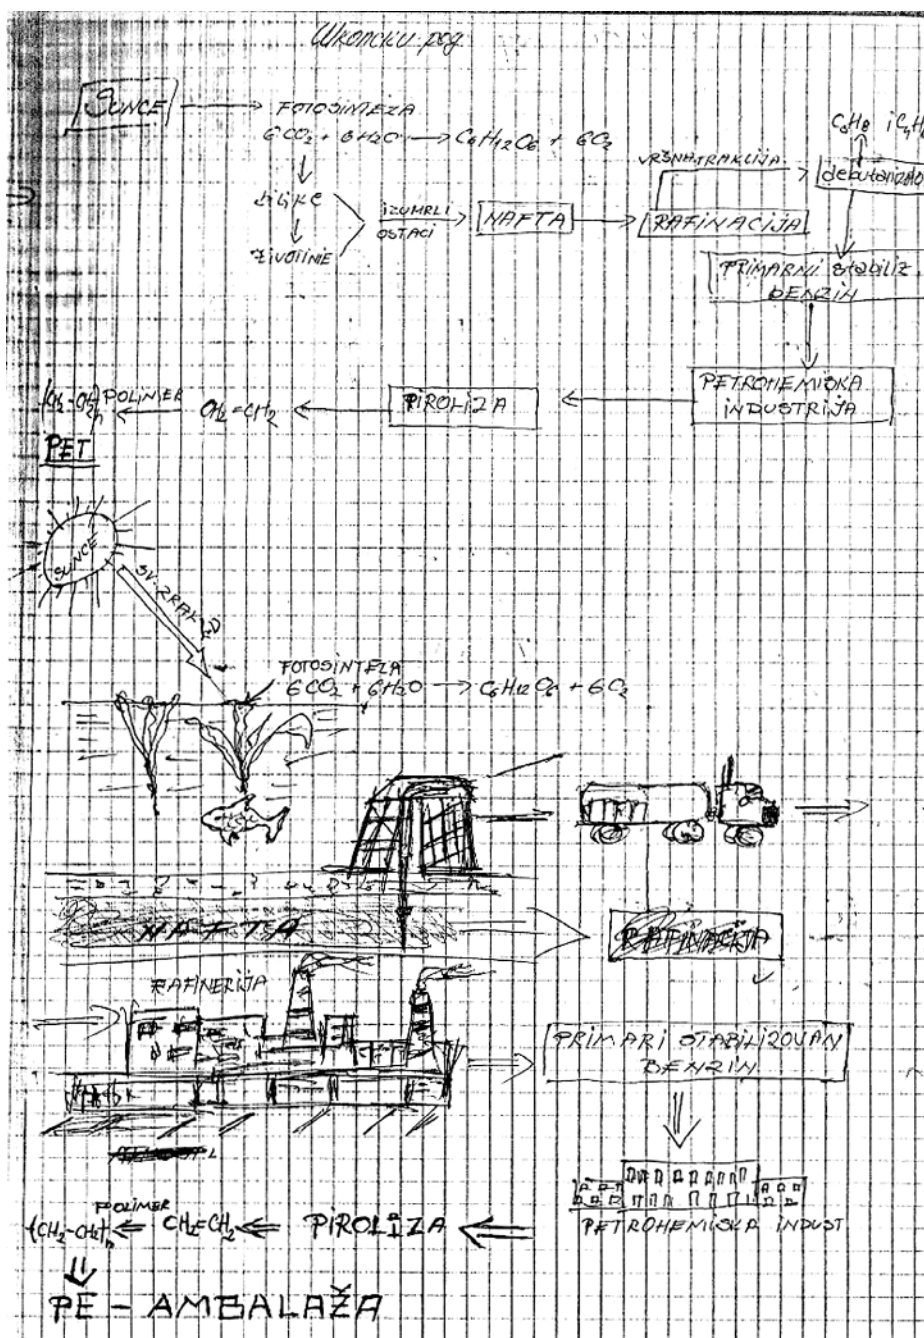 Школски рад
SUNCE
FOTOSINTEZA
6CO2 + 6H2O → C6H12O6 + 6O2
BILJKE
ŽIVOTINJE
IZUMRLI
OSTACI
NAFTA
RAFINACIJA
VRŠNA FRAKCIJA
C3H8 i C4H
debutanizato
PRIMARNI stabiliz
BENZIN
PETROHEMISKA
INDUSTRIJA
PIROLIZA
CH2=CH2
POLIMER
(CH2-CH2)n
PET
SUNCE
SV. ZRAK
FOTOSINTEZA
6CO2 + 6H2O → C6H12O6 + 6O2
NAFTA
RAFINACIJA
RAFINERIJA
PRIMARI STABILIZOVAN
BENZIN
PETROHEMISKA INDUST
PIROLIZA
CH2=CH2
POLIMER
(CH2-CH2)n
PE - AMBALAŽA